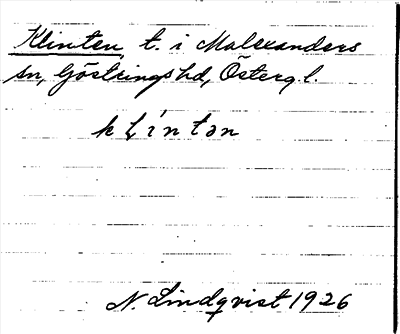 Klinten, t. i Malexanders
sn, Göstrings hd, Östergl.
klíntən
N. Lindqvist 1926